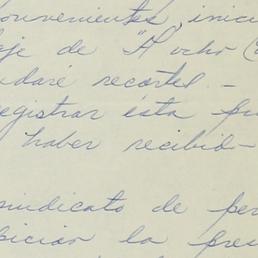 onvenientes, inici
aje de "A ocho
udaré recortes -
egistrar ésta pu
haber recibid-
sindicato de per
spician la pres